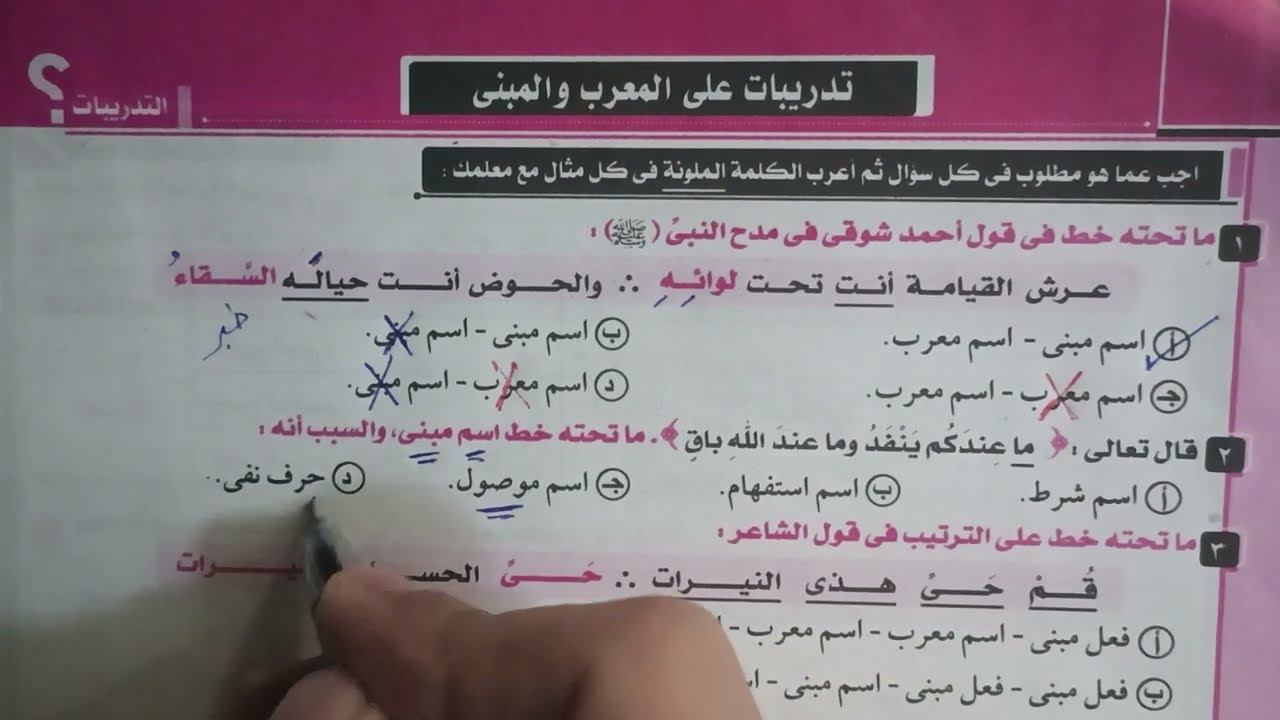 تدريبات على المعرب والمبنى
التدريبات ؟
اجب عما هو مطلوب فى كل سؤال ثم أعرب الكلمة الملونة فى كل مثال مع معلمك :
١ ما تحته خط فى قول أحمد شوقى فى مدح النبىِّ (ﷺ) :
عرش القيامة أنت تحت لوائهِ ∴ والحوض أنت حيالَه السَّقاءُ
خبر
أ اسم مبنى - اسم معرب.
ب اسم مبنى - اسم مبنى.
جـ اسم معرب - اسم معرب.
د اسم معرب - اسم مبنى.
٢ قال تعالى : ﴿ ما عِندَكُم يَنْفَدُ وما عندَ اللهِ باقٍ ﴾. ما تحته خط اسم مبنى، والسبب أنه :
أ اسم شرط.
ب اسم استفهام.
جـ اسم موصول.
د حرف نفى.
٣ ما تحته خط على الترتيب فى قول الشاعر :
قُمْ حَىِّ هذى النيرات ∴ حَىِّ الحسـ
أ فعل مبنى - اسم معرب - اسم معرب -
ب فعل مبنى - فعل مبنى - اسم مبنى -